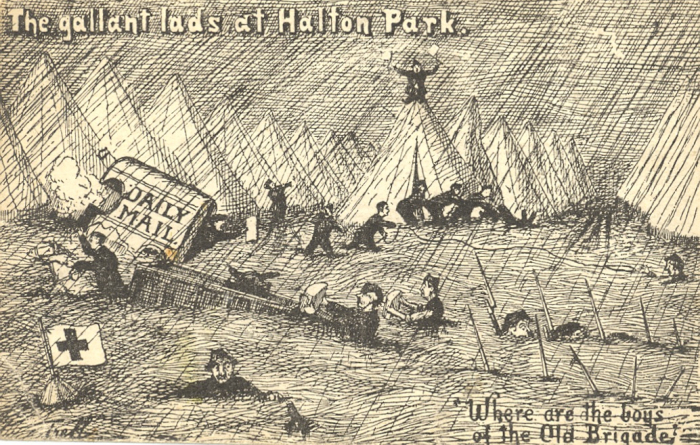 The gallant lads at Halton Park.
DAILY
MAIL
"Where are the boys
of the Old Brigade!"